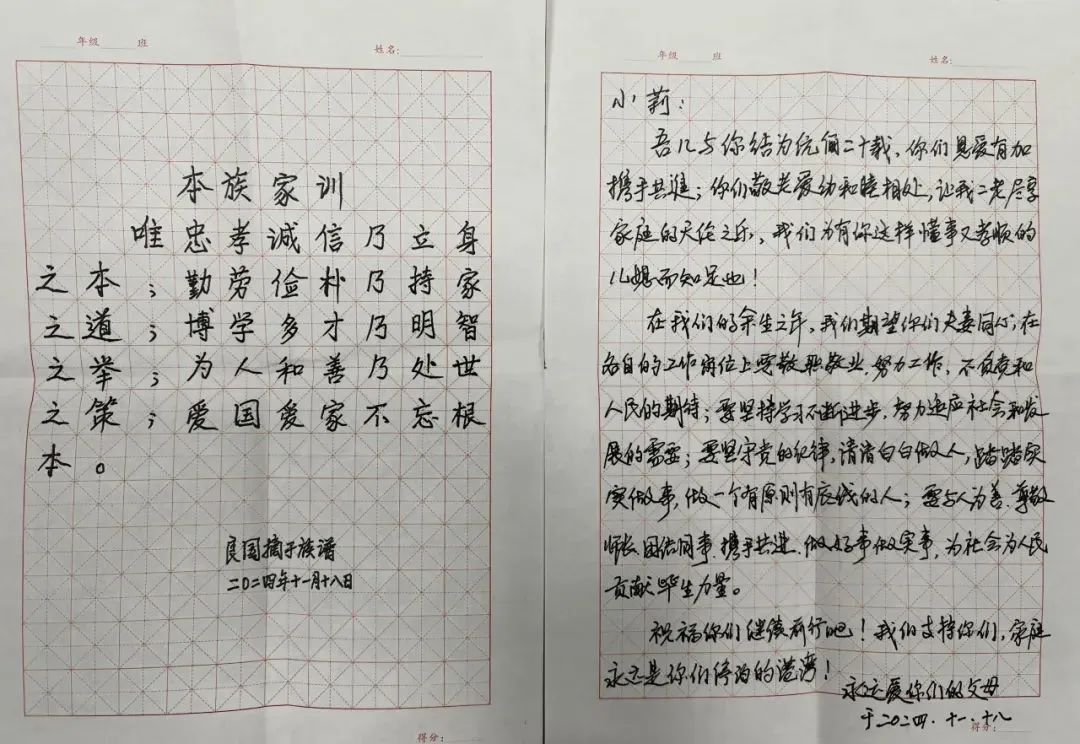 年级 班 姓名:
本族家训
唯忠孝诚信乃立身
之本；勤劳俭朴乃持家
之道；博学多才乃明智
之举；为人和善乃处世
之策；爱国爱家不忘根
本。
良国摘于族谱
二〇二四年十一月十八日
得分:
年级 班 姓名:
小莉：
吾儿与你结为伉俪二十载，你们恩爱有加
携手共进；你们敬老爱幼和睦相处，让我二老尽享
家庭的天伦之乐，我们为有你这样懂事又孝顺的
儿媳而知足也！
在我们的余生之年，我们期望你们夫妻同心，在
各自的工作岗位上要敬职敬业，努力工作，不负党和
人民的期待；要坚持学习不断进步，努力适应社会和发
展的需要；要坚守党的纪律，清清白白做人，踏踏实
实做事，做一个有原则有底线的人；要与人为善、尊敬
师长、团结同事、携手共进、做好事做实事，为社会为人民
贡献毕生力量。
祝福你们继续前行吧！我们支持你们，家庭
永远是你们停泊的港湾！
永远爱你们的父母
于二〇二四.十一.十八
得分: